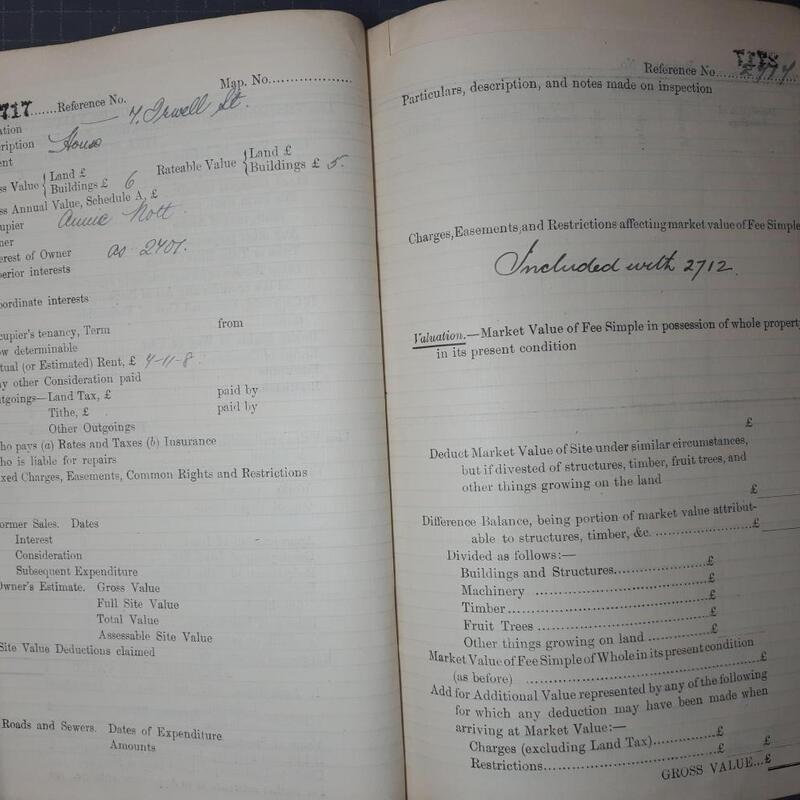 717......Reference No.
Map. No..................
ation 7. Irwell St.
cription House
ent
ss Value { Land £ Buildings £ 6 Rateable Value { Land £ Buildings £ 5.
ss Annual Value, Schedule A, £
upier Annie Nott.
ner
erest of Owner as 2401.
perior interests
oordinate interests
cupier's tenancy, Term from
ow determinable
tual (or Estimated) Rent, £ 4-11-8.
ny other Consideration paid
utgoings—Land Tax, £ paid by
Tithe, £ paid by
Other Outgoings
ho pays (a) Rates and Taxes (b) Insurance
ho is liable for repairs
xed Charges, Easements, Common Rights and Restrictions
ormer Sales. Dates
Interest
Consideration
Subsequent Expenditure
Owner's Estimate. Gross Value
Full Site Value
Total Value
Assessable Site Value
Site Value Deductions claimed
Roads and Sewers. Dates of Expenditure
Amounts
Reference No.
Particulars, description, and notes made on inspection
Charges, Easements, and Restrictions affecting market value of Fee Simple
Included with 2712.
Valuation.—Market Value of Fee Simple in possession of whole property
in its present condition
£
Deduct Market Value of Site under similar circumstances,
but if divested of structures, timber, fruit trees, and
other things growing on the land
£
Difference Balance, being portion of market value attribut-
able to structures, timber, &c. ..................£
Divided as follows:—
Buildings and Structures..................£
Machinery ..................£
Timber..................£
Fruit Trees ..................£
Other things growing on land ............£
Market Value of Fee Simple of Whole in its present condition
(as before) ..................£
Add for Additional Value represented by any of the following
for which any deduction may have been made when
arriving at Market Value:—
Charges (excluding Land Tax)............£
Restrictions..................£ £
GROSS VALUE...£